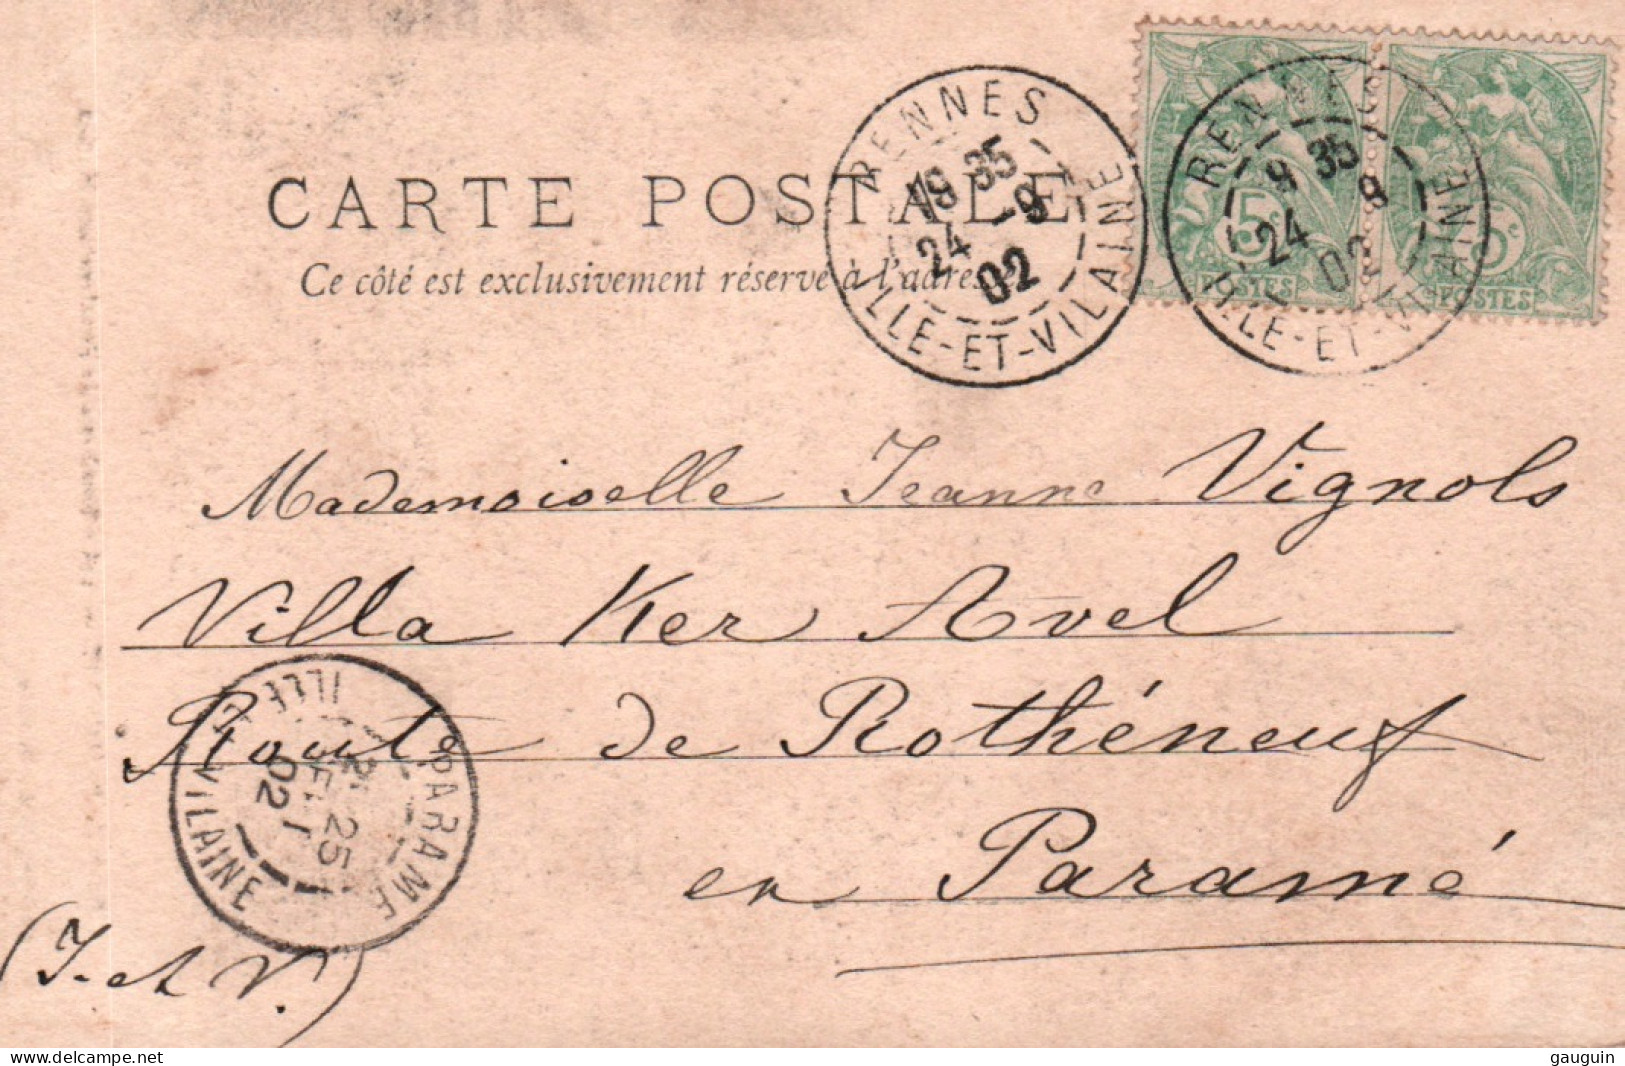 CARTE POSTALE
Ce côté est exclusivement réservé à l'adresse
RENNES
19 35
24 -9
02
ILLE-ET-VILAINE
RENNES
35
24 9
02
ILLE-ET-VILAINE
5c
POSTES
5c
POSTES
Mademoiselle Jeanne Vignols
Villa Ker Avel
Route de Rothéneuf
en Paramé
PARAMÉ
25
02
ILLE ET VILAINE
(I. et V.)
delcampe.net
gauguin